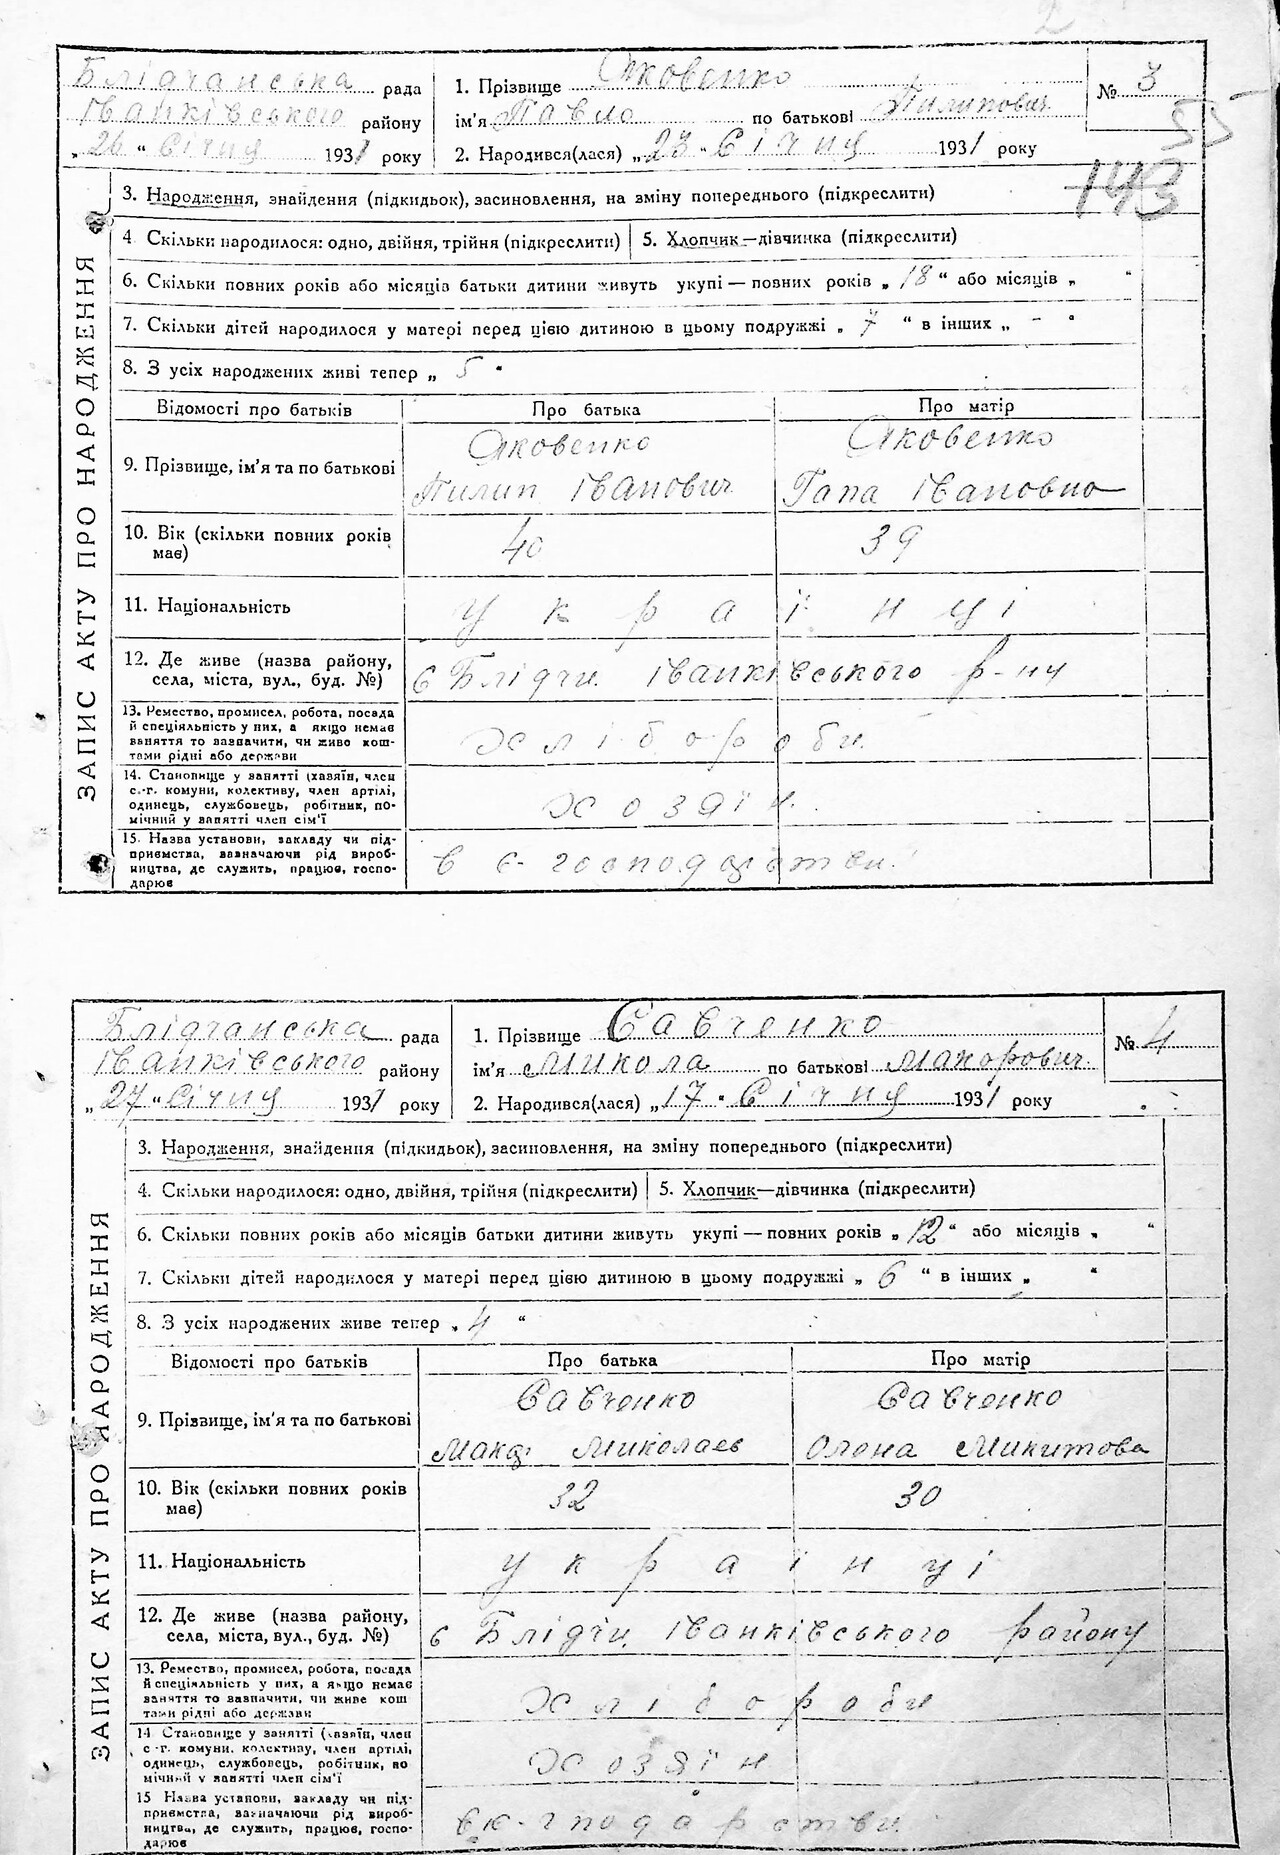 2
Блідчанська рада
Іванківського району
„26“ Січня 1931 року
1. Прізвище Яковенко
ім'я Павло по батькові Пилипович
2. Народився(лася) „23“ Січня 1931 року
№ 3
55
143
ЗАПИС АКТУ ПРО НАРОДЖЕННЯ
3. Народження, знайдення (підкидьок), засиновлення, на зміну попереднього (підкреслити)
4 Скільки народилося: одно, двійня, трійня (підкреслити) 5. Хлопчик—дівчинка (підкреслити)
6. Скільки повних років або місяців батьки дитини живуть укупі — повних років „18“ або місяців „ “
7. Скільки дітей народилося у матері перед цією дитиною в цьому подружжі „7“ в інших „ - “
8. З усіх народжених живі тепер „5“
Відомості про батьків Про батька Про матір
9. Прізвище, ім'я та по батькові
Яковенко Яковенко
Пилип Іванович Гапа Івановна
10. Вік (скільки повних років має) 40 39
11. Національність українці
12. Де живе (назва району, села, міста, вул., буд. №) с Блідчи Іванківського р-ну
13. Ремество, промисел, робота, посада
й спеціяльність у них, а якщо немає
заняття то зазначити, чи живе кош-
тами рідні або держави
хлібороби
14. Становище у занятті (хазяїн, член
с.-г. комуни, колективу, член артілі,
одинець, службовець, робітник, по-
мічний у занятті член сім'ї
хозяїн
15. Назва установи, закладу чи під-
приємства, зазначаючи рід вироб-
ництва, де служить, працює, госпо-
дарює
в с-господарстви
Блідчанська рада
Іванківського району
„27“ Січня 1931 року
1. Прізвище Савченко
ім'я Микола по батькові Макорович
2. Народився(лася) „17“ Січня 1931 року
№ 4
ЗАПИС АКТУ ПРО НАРОДЖЕННЯ
3. Народження, знайдення (підкидьок), засиновлення, на зміну попереднього (підкреслити)
4. Скільки народилося: одно, двійня, трійня (підкреслити) 5. Хлопчик—дівчинка (підкреслити)
6. Скільки повних років або місяців батьки дитини живуть укупі — повних років „12“ або місяців „ “
7. Скільки дітей народилося у матері перед цією дитиною в цьому подружжі „6“ в інших „ “
8. З усіх народжених живе тепер „4“
Відомості про батьків Про батька Про матір
9. Прізвище, ім'я та по батькові
Савченко Савченко
Миколаєв Олена Микитова
10. Вік (скільки повних років має) 32 30
11. Національність українці
12. Де живе (назва району, села, міста, вул., буд. №) с Блідчи Іванківського району
13. Ремество, промисел, робота, посада
й спеціяльність у них, а якщо немає
заняття то зазначити, чи живе кош
тами рідні або держави
хлібороби
14 Становище у занятті (хазяїн, член
с-г. комуни, колективу, член артілі,
одинець, службовець, робітник, по
мічний у занятті член сім'ї
хозяїн
15 Назва установи, закладу чи під-
приємства, зазначаючи рід вироб-
ництва, де служить, працює, госпо-
дарює